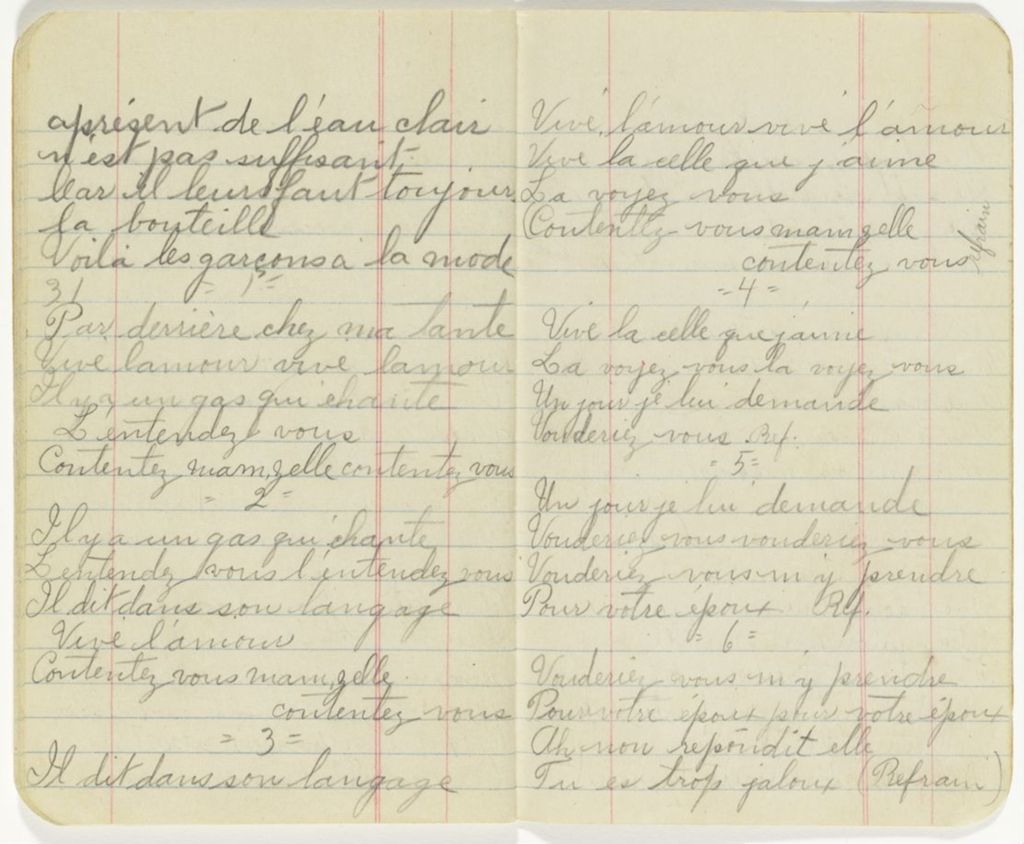 aprésent de l'éau clair
n'est pas suffisant
Car il leurs faut toujour
la bouteille
Voila les garçons a la mode
31 = 1 =
Par derrière chez ma tante
Vive lamour vive lamour
Il y a un gas qui chante
L'entendez vous
Contentez mam,zelle contentez vous
= 2 =
Il y a un gas qui chante
L'entendez vous l'entendez vous
Il dit dans son langage
Vive l'amour
Contentez vous mam,zelle
contentez vous
= 3 =
Il dit dans son langage
Vive l'amour vive l'amour
Vive la celle que j'aime
La voyez vous
(Contentez vous mamzelle
contentez vous
refrain
= 4 =
Vive la celle que j'aime
La voyez vous la voyez vous
Un jour je lui demande
Vouderiez vous Ref.
= 5 =
Un jour je lui demande
Vouderiez vous vouderiez vous
Vouderiez vous m'y prendre
Pour votre époux Ref.
= 6 =
Vouderiez vous m'y prendre
Pour votre époux pour votre époux
Ah non repondit elle
Tu es trop jaloux (Refrain)